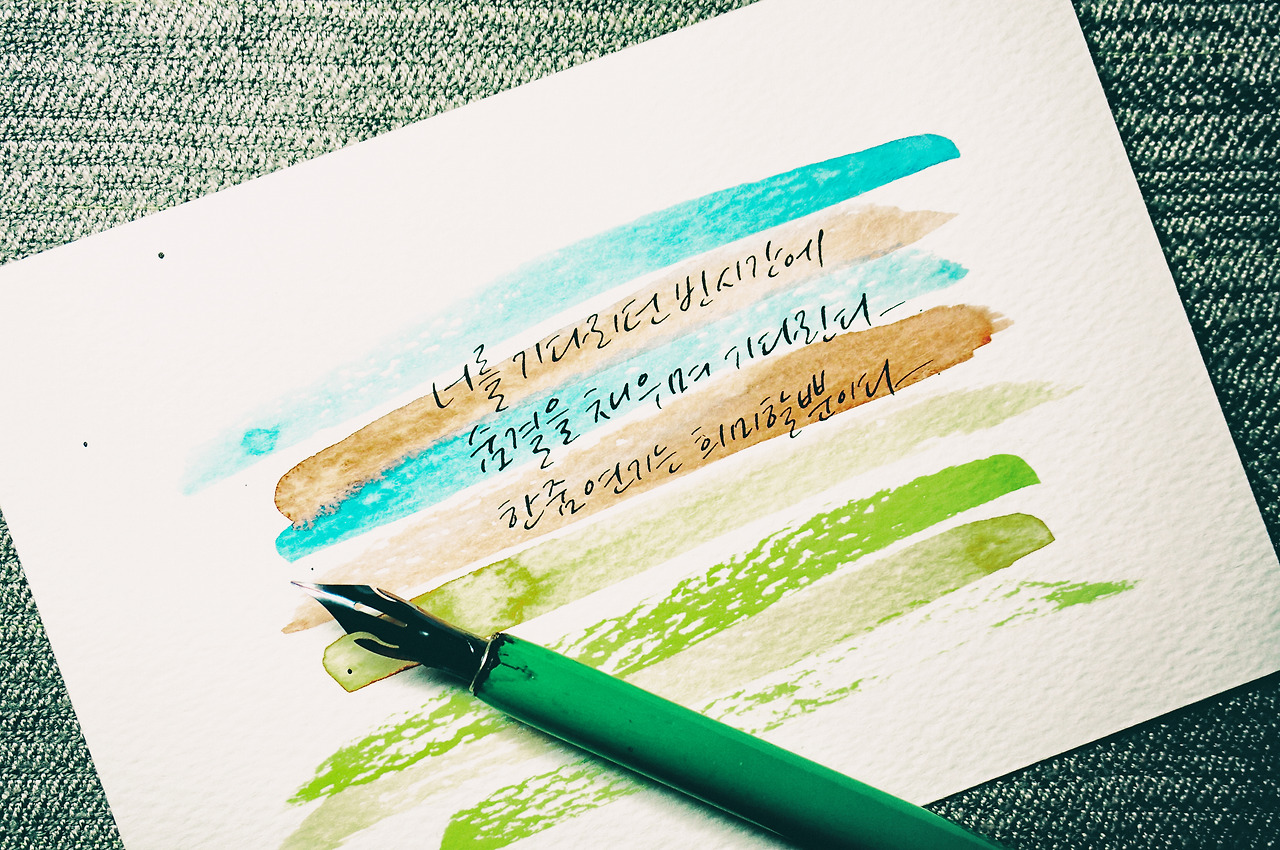 너를 기다리던 빈시간에
숨결을 채우며 기다린다
한줌연기는 희미할뿐이다